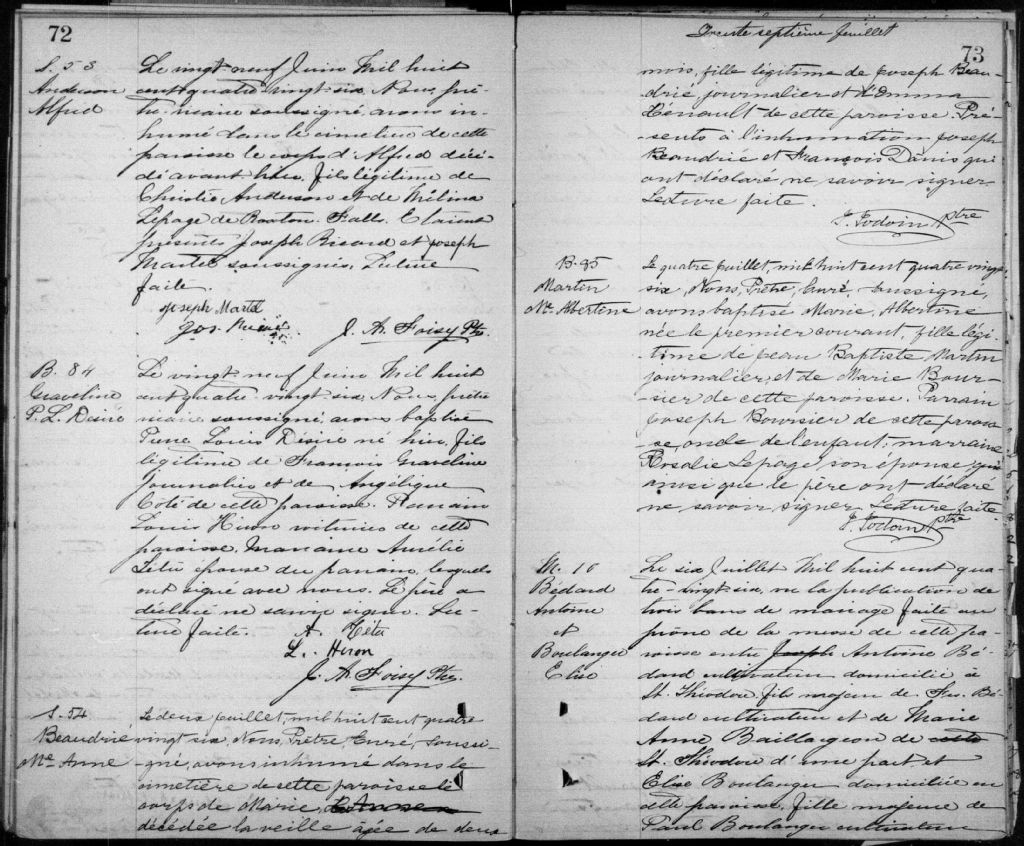 72
S. 53
Anderson
Alfred
Le vingt neuf Juin Mil huit
cent quatre vingt six, Nous, prê-
tre vicaire soussigné, avons in-
humé dans le cimetière de cette
paroisse le corps d'Alfred décé-
dé avant hier, fils légitime de
Christie Anderson et de Mélina
Lepage de Roxton Falls. Etaient
présents Joseph Ricard et Joseph
Martel soussignés. Lecture
faite.
Joseph Martel
Jos. Ricard
J. A. Foisy Ptre.
B. 84
Graveline
P. L. Désiré
Le vingt neuf Juin Mil huit
cent quatre vingt six, Nous, prêtre
vicaire soussigné, avons baptisé
Pierre Louis Désiré né hier, fils
légitime de François Graveline
Journalier et de Angélique
Côté de cette paroisse. Parrain
Louis Heron voiturier de cette
paroisse, Marraine Aurélie
Hétu épouse du parrain, lesquels
ont signé avec nous. Le père a
déclaré ne savoir signer. Lec-
ture faite.
A. Hétu
L. Heron
J. A. Foisy Ptre.
S. 54
Beaudrié
Mie Anne
Le deux Juillet, mil huit cent quatre
vingt six, Nous, Prêtre, Curé, Soussi-
gné, avons inhumé dans le
cimetière de cette paroisse le
corps de Marie,
décédée la veille âgée de deux
Trente septième feuillet
73
mois, fille légitime de Joseph Beau-
drié journalier et d'Emma
Hénault de cette paroisse. Pré-
sents à l'inhumation Joseph
Beaudrié et François Danis qui
ont déclaré ne savoir signer.
Lecture faite.
J. Jodoin Ptre
B. 85
Martin
Mie Albertine
Le quatre Juillet, mil huit cent quatre vingt
six, Nous, Prêtre, Curé, Soussigné,
avons baptisé Marie, Albertine
née le premier courant, fille légi-
time de Jean Baptiste Martin
journalier, et de Marie Bour-
sier de cette paroisse. Parrain
Joseph Boursier de cette parois-
se, oncle de l'enfant; marraine
Rosalie Lepage son épouse qui
ainsi que le père ont déclaré
ne savoir signer. Lecture faite.
J. Jodoin Ptre
M. 10
Bédard
Antoine
et
Boulanger
Elise
Le six Juillet Mil huit cent qua-
tre-vingt-six, vu la publication de
trois bans de mariage faite au
prône de la messe de cette pa-
roisse entre Joseph Antoine Bé-
dard cultivateur domicilié à
St. Théodore, fils majeur de Frs. Bé-
dard cultivateur et de Marie
Anne Baillargeon de cette
St. Théodore d'une part et
Elise Boulanger domiciliée en
cette paroisse, fille majeure de
Paul Boulanger cultivateur